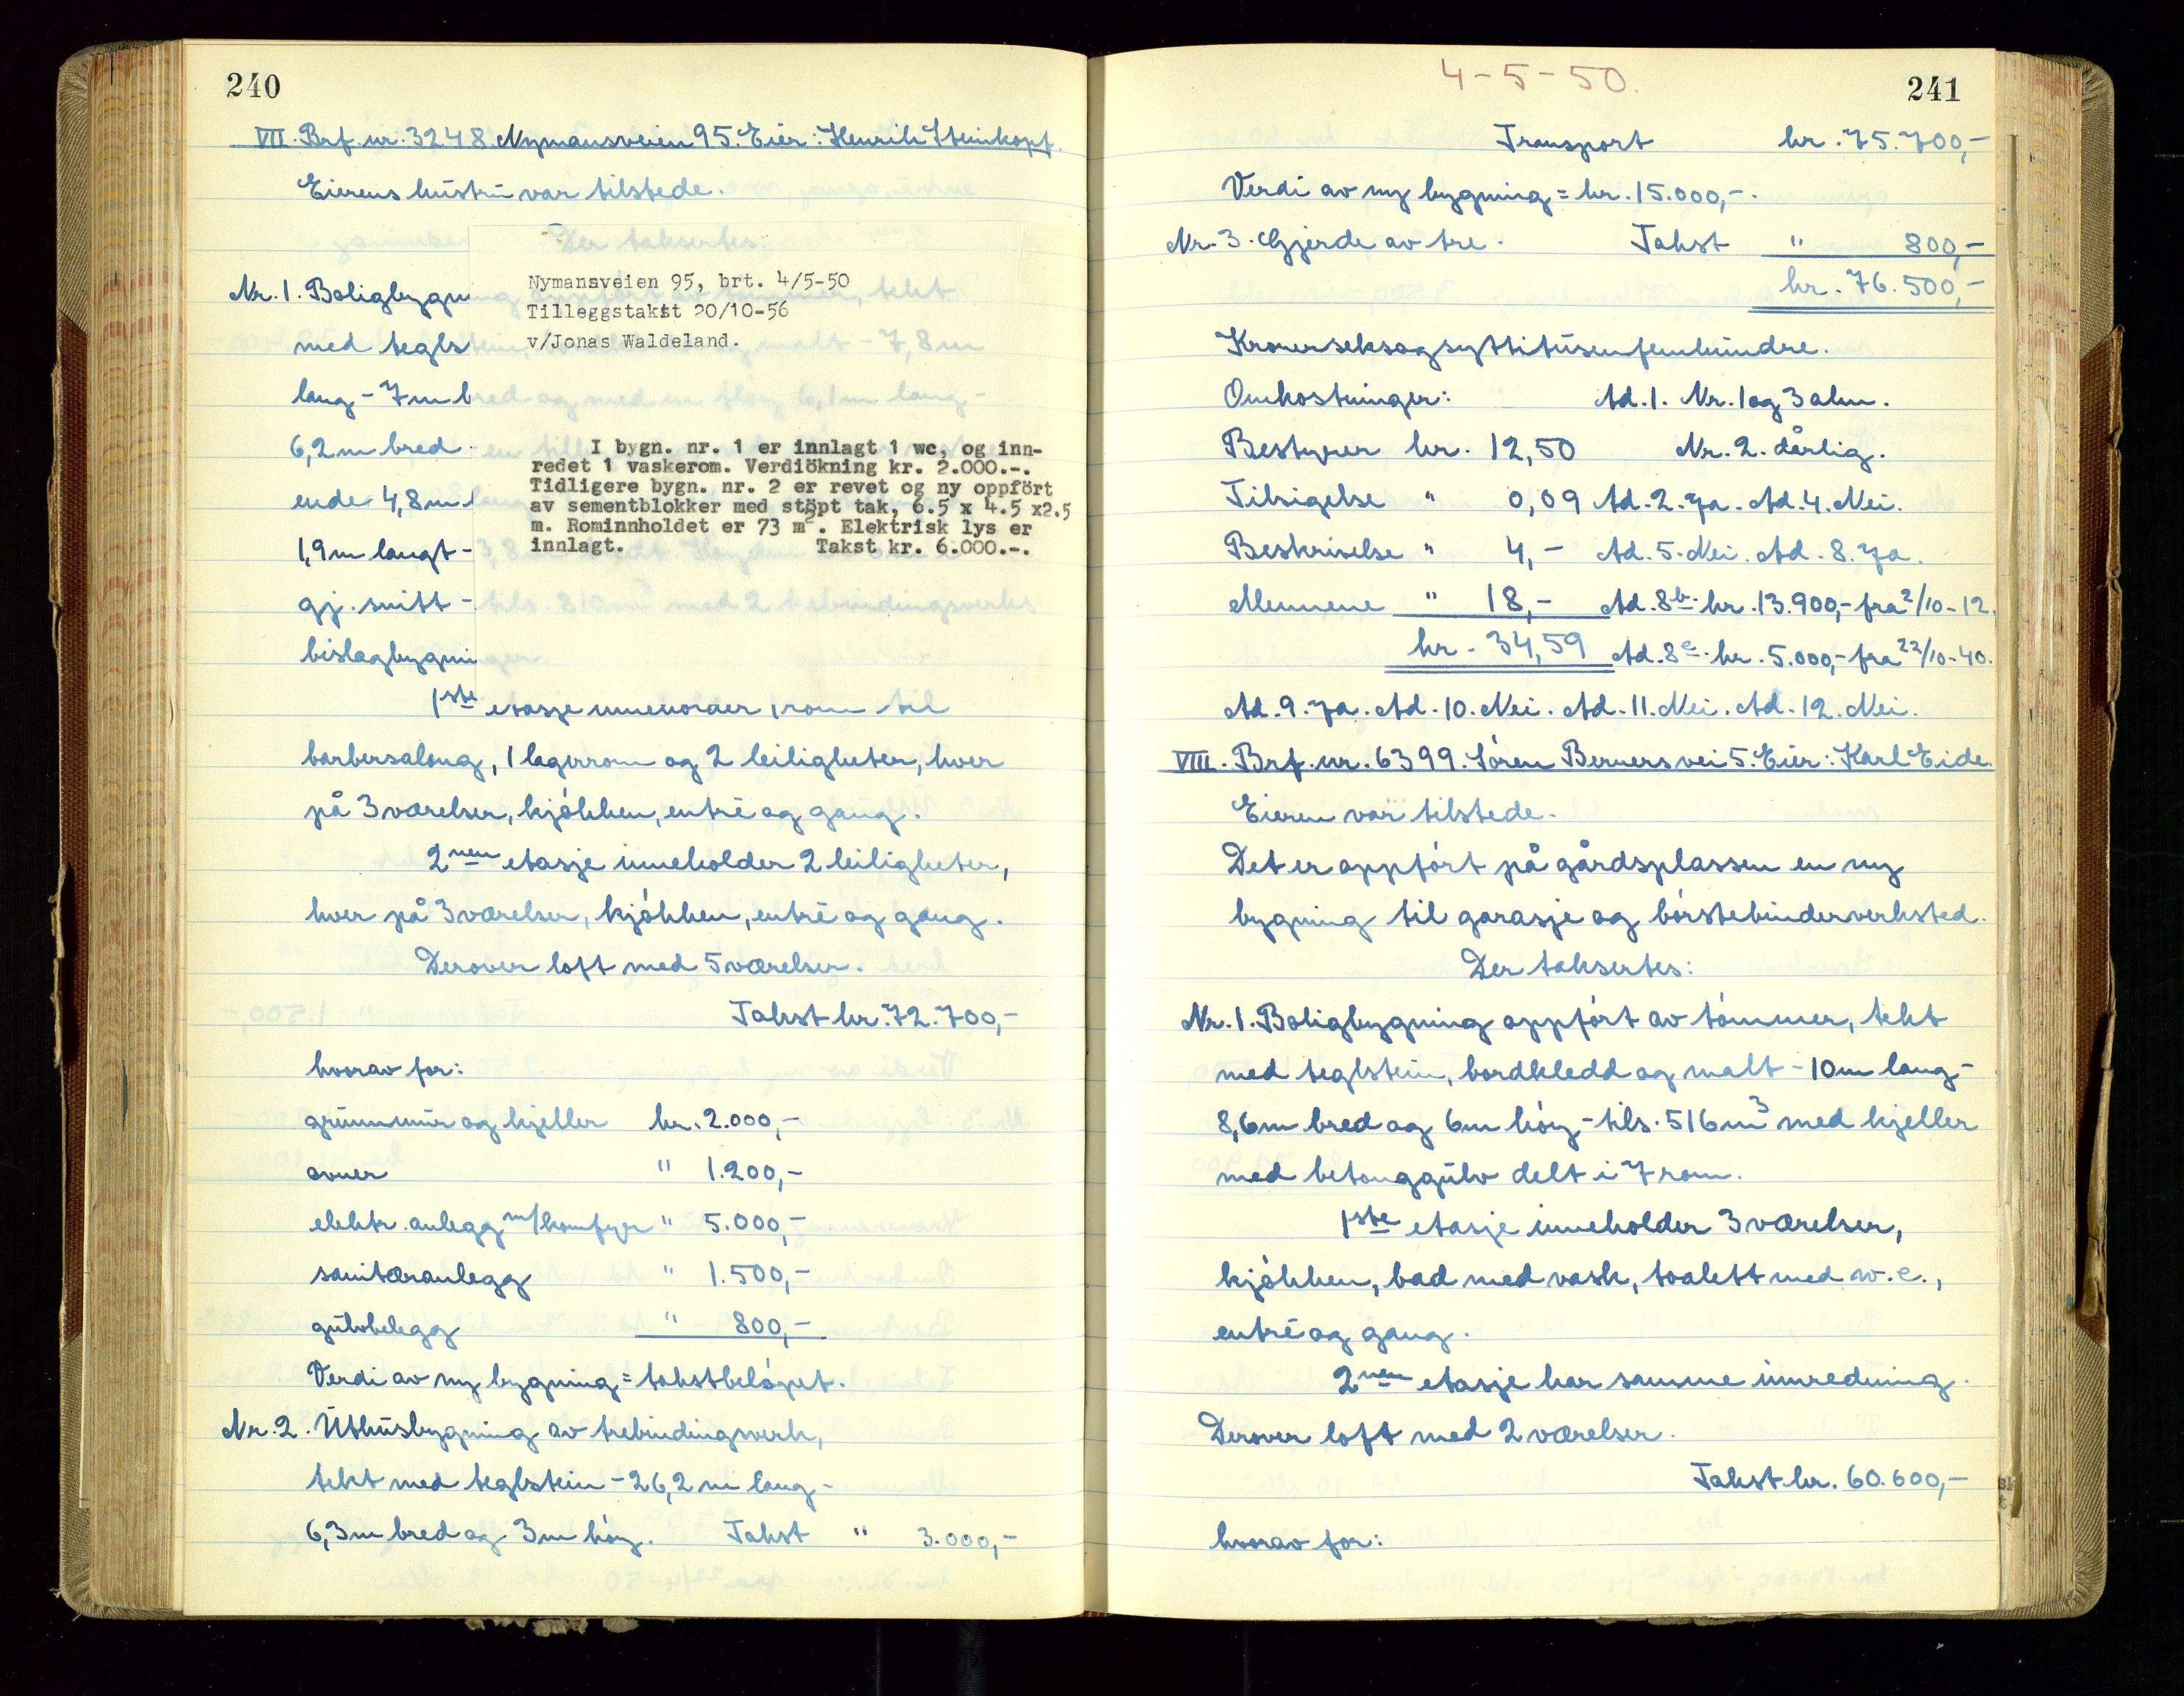 240
VII. Brf. nr. 3248. Nymansveien 95. Eier: Henrik Steinkopf.
Eierens hustru var tilstede.
Der taksertes:
Nymansveien 95, brt. 4/5-50
Tilleggstakst 20/10-56
v/Jonas Waldeland.
I bygn. nr. 1 er innlagt 1 wc, og inn-
redet 1 vaskerom. Verdiökning kr. 2.000.-.
Tidligere bygn. nr. 2 er revet og ny oppfört
av sementblokker med stöpt tak, 6.5 x 4.5 x2.5
m. Rominnholdet er 73 m². Elektrisk lys er
innlagt. Takst kr. 6.000.-.
Nr. 1. Boligbygn
med tegls
lang - 7 m b
6,2 m bred -
ende 4,8 m
1,9 m langt -
gj. snitt -
bislagbygni
1ste etasje inneholder 1 rom til
barbersalong, 1 lagerrom og 2 leiligheter, hver
på 3 værelser, kjøkken, entré og gang.
2nen etasje inneholder 2 leiligheter,
hver på 3 værelser, kjøkken, entré og gang.
Derover loft med 5 værelser.
Takst kr. 72.700,-
hvorav for:
grunnmur og kjeller kr. 2.000,-
ovner " 1.200,-
elektr. anlegg m/komfyr " 5.000,-
sanitæranlegg " 1.500,-
gulvbelegg " 800,-
Verdi av ny bygning = takstbeløpet.
Nr. 2. Uthusbygning av trebindingsverk,
tekt med teglstein - 26,2 m lang -
6,3 m bred og 3 m høy. Takst " 3.000,-
4-5-50.
241
Transport kr. 75.700,-
Verdi av ny bygning = kr. 15.000,-.
Nr. 3. Gjerde av tre. Takst " 800,-
kr. 76.500,-
Kronerseksogsyttitusenfemhundre.
Omkostninger: Ad. 1. Nr. 1 og 3 alm.
Bestyrer kr. 12,50 Nr. 2. dårlig.
Tilsigelse " 0,09 Ad. 2. Ja. Ad. 4. Nei.
Beskrivelse " 4,- Ad. 5. Nei. Ad. 8. Ja.
Mennene " 18,- Ad. 8b. kr. 13.900,- fra 2/10-12.
kr. 34,59 Ad. 8c. kr. 5.000,- fra 22/10-40.
Ad. 9. Ja. Ad. 10. Nei. Ad. 11. Nei. Ad. 12. Nei.
VIII. Brf. nr. 6399. Søren Berners vei 5. Eier: Karl Eide.
Eieren var tilstede.
Det er oppført på gårdsplassen en ny
bygning til garasje og børstebinderverksted.
Der taksertes:
Nr. 1. Boligbygning oppført av tømmer, tekt
med teglstein, bordkledd og malt - 10 m lang -
8,6 m bred og 6 m høy - tils. 516 m3 med kjeller
med betonggulv delt i 7 rom.
1ste etasje inneholder 3 værelser,
kjøkken, bad med vask, toalett med w.c.,
entré og gang.
2nen etasje har samme innredning.
Derover loft med 2 værelser.
Takst kr. 60.600,-
hvorav for: